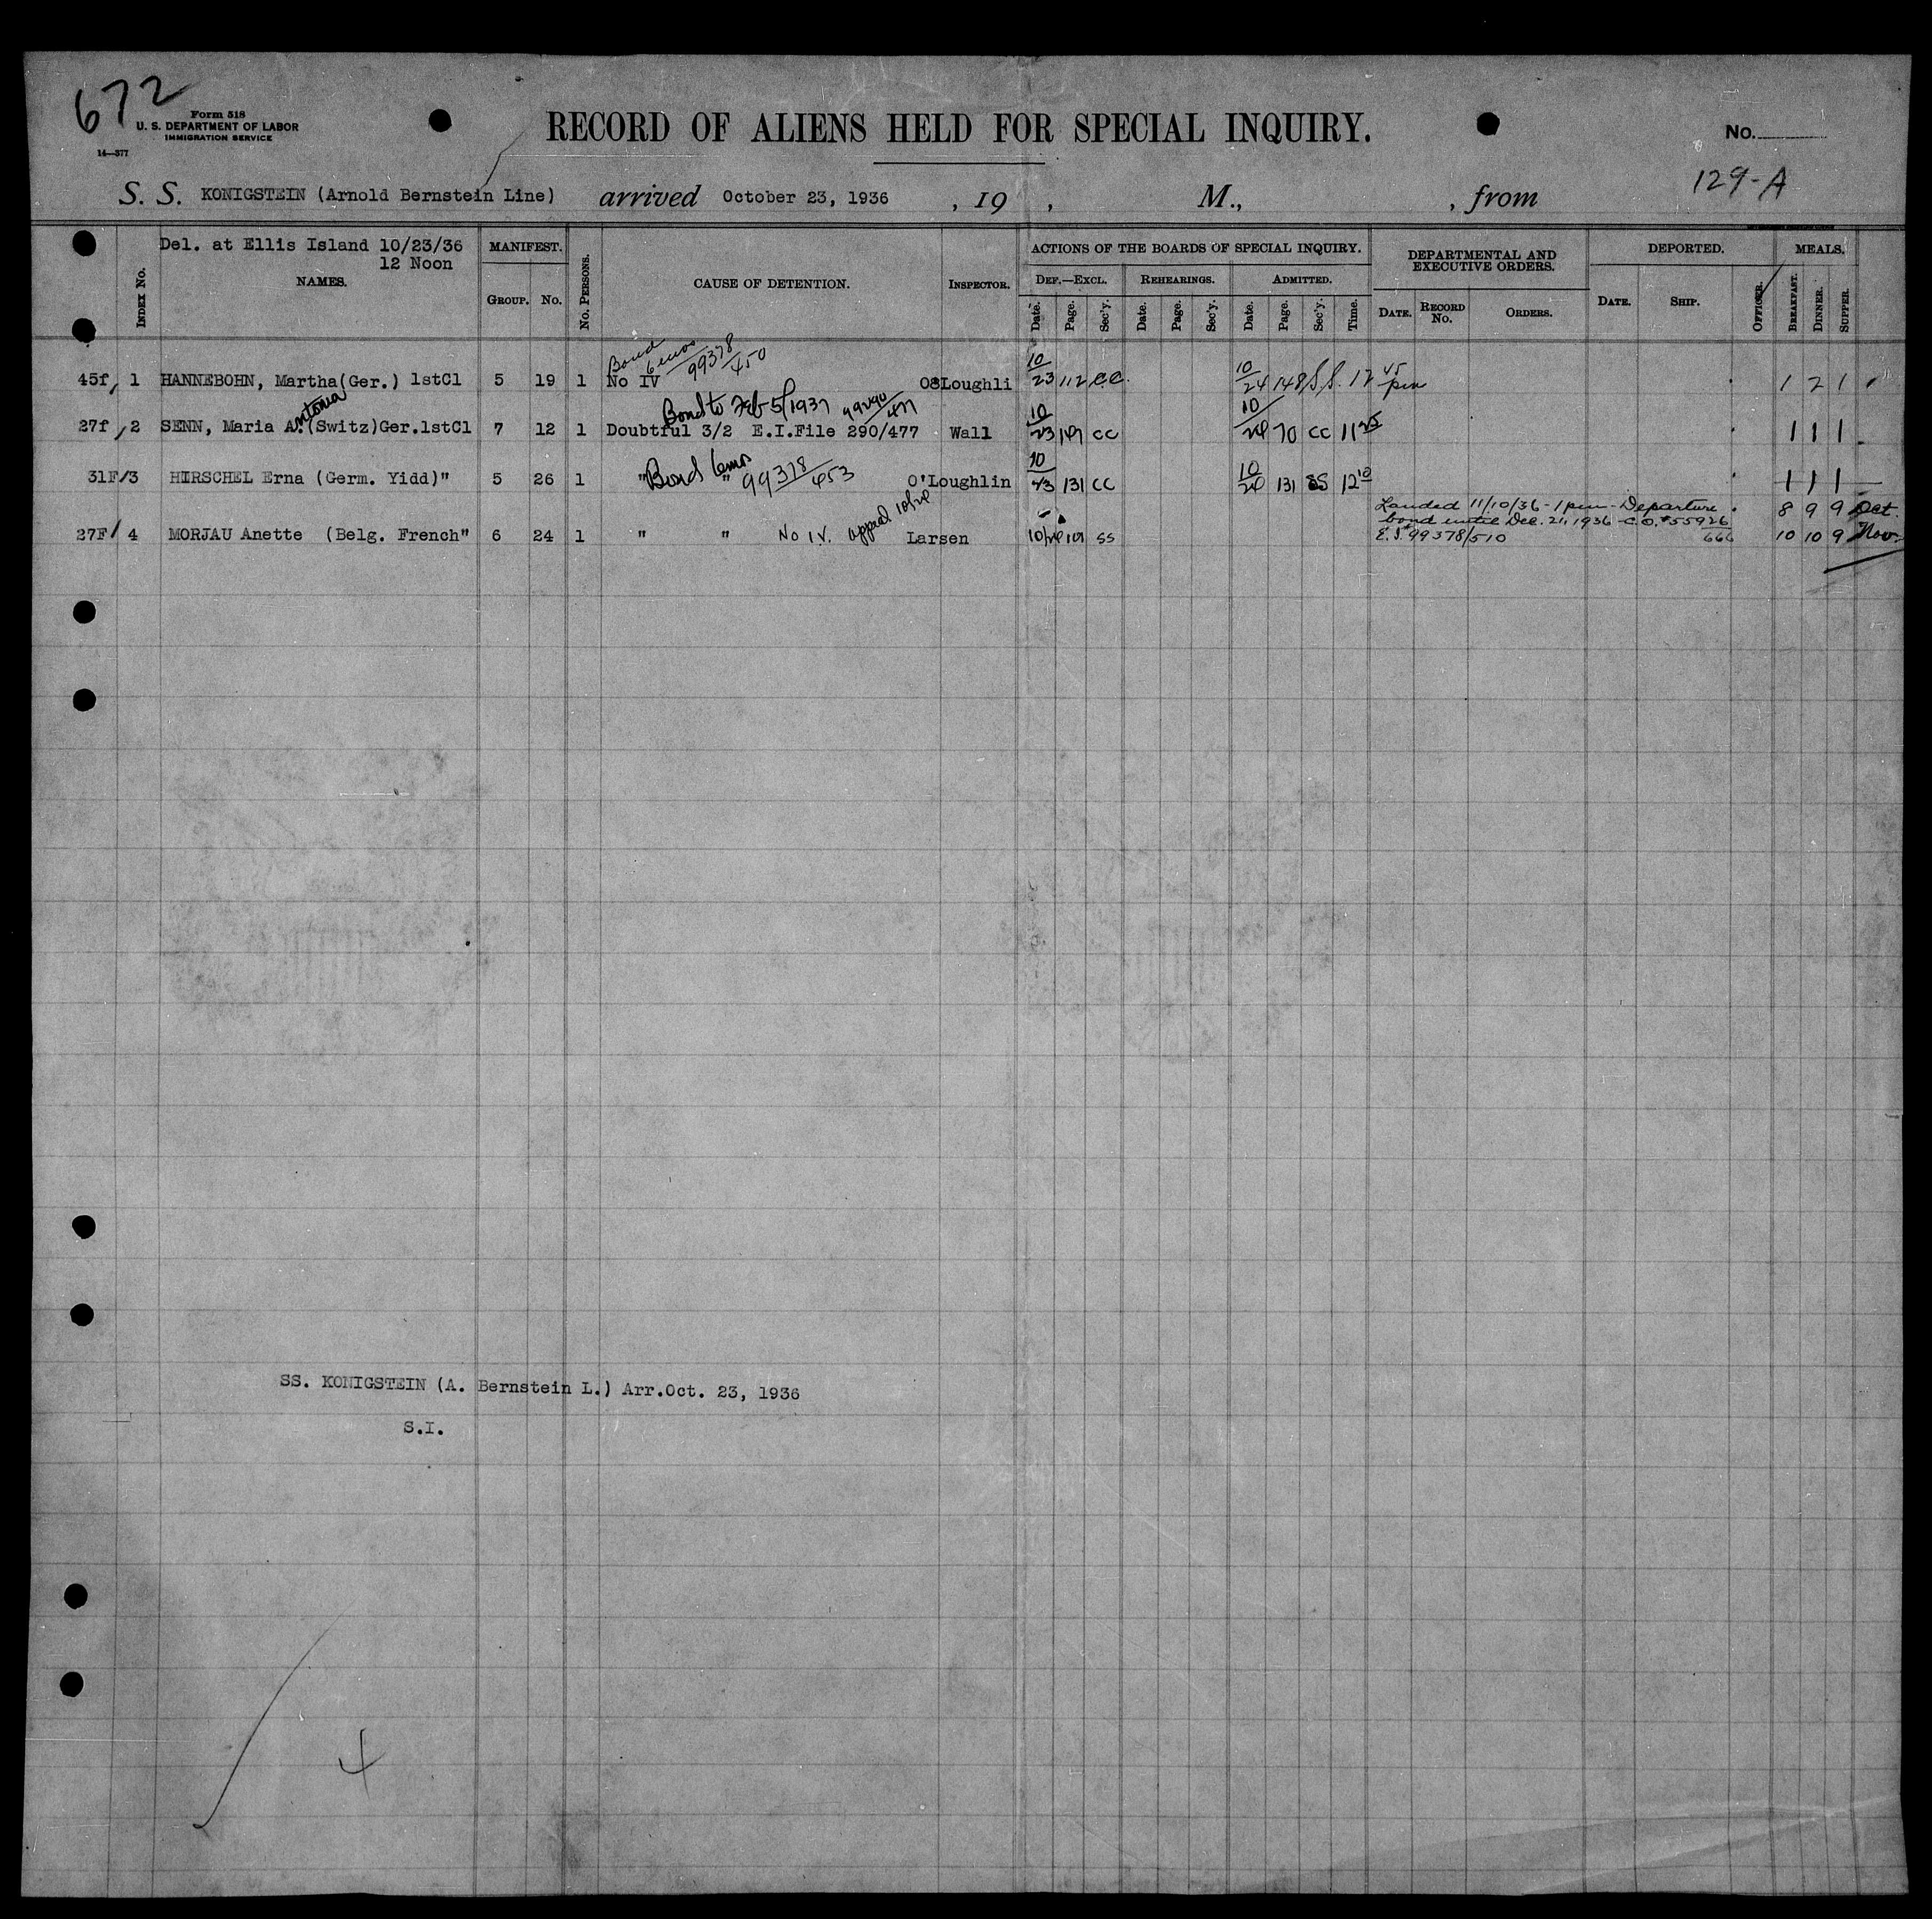 672
Form 518
U. S. DEPARTMENT OF LABOR
IMMIGRATION SERVICE
14—377
RECORD OF ALIENS HELD FOR SPECIAL INQUIRY.
No.
129-A
S. S. KONIGSTEIN (Arnold Bernstein Line) arrived October 23, 1936 , 19 , M., , from
Del. at Ellis Island 10/23/36
12 Noon
INDEX No. NAMES. MANIFEST. GROUP. No. No. PERSONS. CAUSE OF DETENTION. INSPECTOR.
ACTIONS OF THE BOARDS OF SPECIAL INQUIRY.
DEF.—EXCL. REHEARINGS. ADMITTED.
Date. Page. Sec'y. Date. Page. Sec'y. Date. Page. Sec'y. Time.
DEPARTMENTAL AND EXECUTIVE ORDERS.
DATE. RECORD No. ORDERS.
DEPORTED.
DATE. SHIP. OFFICER.
MEALS.
BREAKFAST. DINNER. SUPPER.
Bond 6 mos 99378/450
45f, 1 HANNEBOHN, Martha(Ger.) 1stCl 5 19 1 No IV O8Loughli 10/23 112 C.C. 10/24 148 S.S. 12 45 pm 1 2 1
Antonia Bond to Feb 5/1937 99290/477
27f, 2 SENN, Maria A.(Switz)Ger.1stCl 7 12 1 Doubtful 3/2 E.I.File 290/477 Wall 10/23 CC 10/24 70 CC 11 25 1 1 1
31F/3 HIRSCHEL Erna (Germ. Yidd)" 5 26 1 " " Bond 6 mos 99378/453 O'Loughlin 10/23 131 CC 10/24 131 SS 12 10 1 1 1
Landed 11/10/36 - 1 pm - Departure 8 9 9 Oct.
bond until Dec. 21, 1936 - C.O. #55926/666
27F/ 4 MORJAU Anette (Belg. French" 6 24 1 " " No I.V. appeal 10/24 Larsen 10/24 SS E.I. 99378/510 10 10 9 Nov.
SS. KONIGSTEIN (A. Bernstein L.) Arr.Oct. 23, 1936
S.I.
4